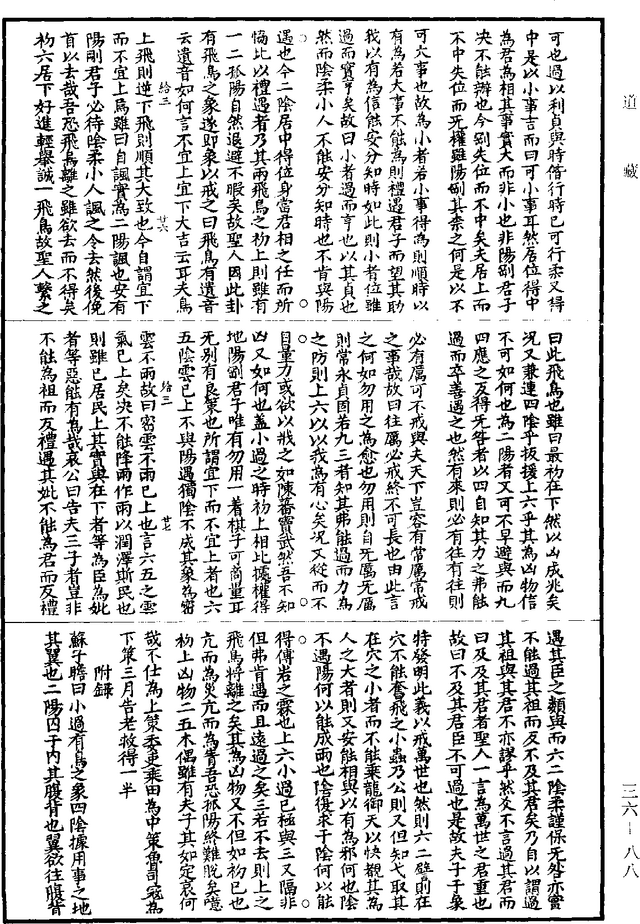 道藏
可也過以利貞與時偕行時已可行柔又得
中是以小事吉而曰可小事耳然居位得中
為君為相其事實大而非小也非陽剛君子
决不能辦也今剛失位而不中矣夫居上而
不中失位而无權雖陽剛其柰之何是以不
可大事也故為小者若小事得為則順時以
有為若大事不能為則禮遇君子而望其助
我以有為信能安分知時如此則小者位雖
過而實亨矣故曰小者過而亨也以其貞也
然而陰柔小人不能安分知時也不肯與陽
遇也今二陰居中得位身當君相之任而所
比以禮遇者乃其兩飛鳥之初上則雖有
一二孤陽自然退避不暇矣故聖人因此卦
有飛鳥之象遂即象以戒之曰飛鳥有遺音
云遺音如何言不宜上宜下大吉云耳夫鳥
給三 廿六
上飛則逆下飛則順其大致也今自謂宜下
而不宜上焉雖曰自諷實為二陽諷也安有
陽剛君子必待陰柔小人諷之令去然後俛
首以去哉吾恐飛鳥離之雖欲去而不得矣
初六居下好進輕舉誠一飛鳥故聖人繫之
曰此飛鳥也雖曰最初在下然以凶成兆矣
况又兼連四陰乎扳援上六乎其為凶物信
不可如何也為二陽者又可不早避與而九
四應之反得无咎者以四自知其力之弗能
過而卒善遇之也然有來則必有往有往則
必有厲可不戒與夫天下豈容有常厲常戒
之事哉故曰往厲必戒終不可長也由此言
之何如勿用之為愈也勿用則自无厲无厲
則常永貞固若九三者知其弗能過而力為
之防則上六以以我為有心矣况又從而不
目量力或欲以戕之如陳蕃竇武然吾不知
凶又如何也蓋小過之時初上相比據權得
地陽剛君子唯有勿用一着棋子可商量耳
无別有良策也所謂宜下而不宜上者也六
五陰雲已上不與陽遇獨陰不成其象為密
給三 廿七
雲不雨故曰密雲不雨已上也言六五之雲
氣已上矣决不能降雨作雨以潤澤斯民也
則雖已居民上其實與在下者等為臣為妣
者等惡能有為哉哀公曰告夫三子者豈非
不能為祖而反禮遇其妣不能為君而反禮
遇其臣之類與而六二陰柔謹保无咎亦實
不能過其祖而反不及其君矣乃自以謂過
其祖與其君不亦謬乎然爻不言過其君而
曰及及其君者聖人一言為萬世之君重也
故曰不及其君臣不可過也是故夫子于彖
特發明此義以戒萬世也然則六二譬則在
穴不能奮飛之小蟲乃公則又但知弋取其
在穴之小者而不能乘龍御天以快覩其為
人之大者則又安能相與以有為邪何也陰
不遇陽何以能成雨也陰復求于陰何以能
得傅岩之霖也上六小過已極與三又隔非
但弗肯遇而且遠過之矣三若不去則上之
飛鳥將離之矣其為凶物又不但如初已也
亢而為災亢而為眚吾恐孤陽終難脫矣噫
初上凶物二五木偶雖有夫子其如定哀何
敬不仕為上策委吏乘田為中策魯司寇為
下策三月告老救得一半
附錄
蘇子瞻曰小過有鳥之象四陰據用事之地
其翼也二陽囚于內其腹背也翼欲往腹背
三六—八八